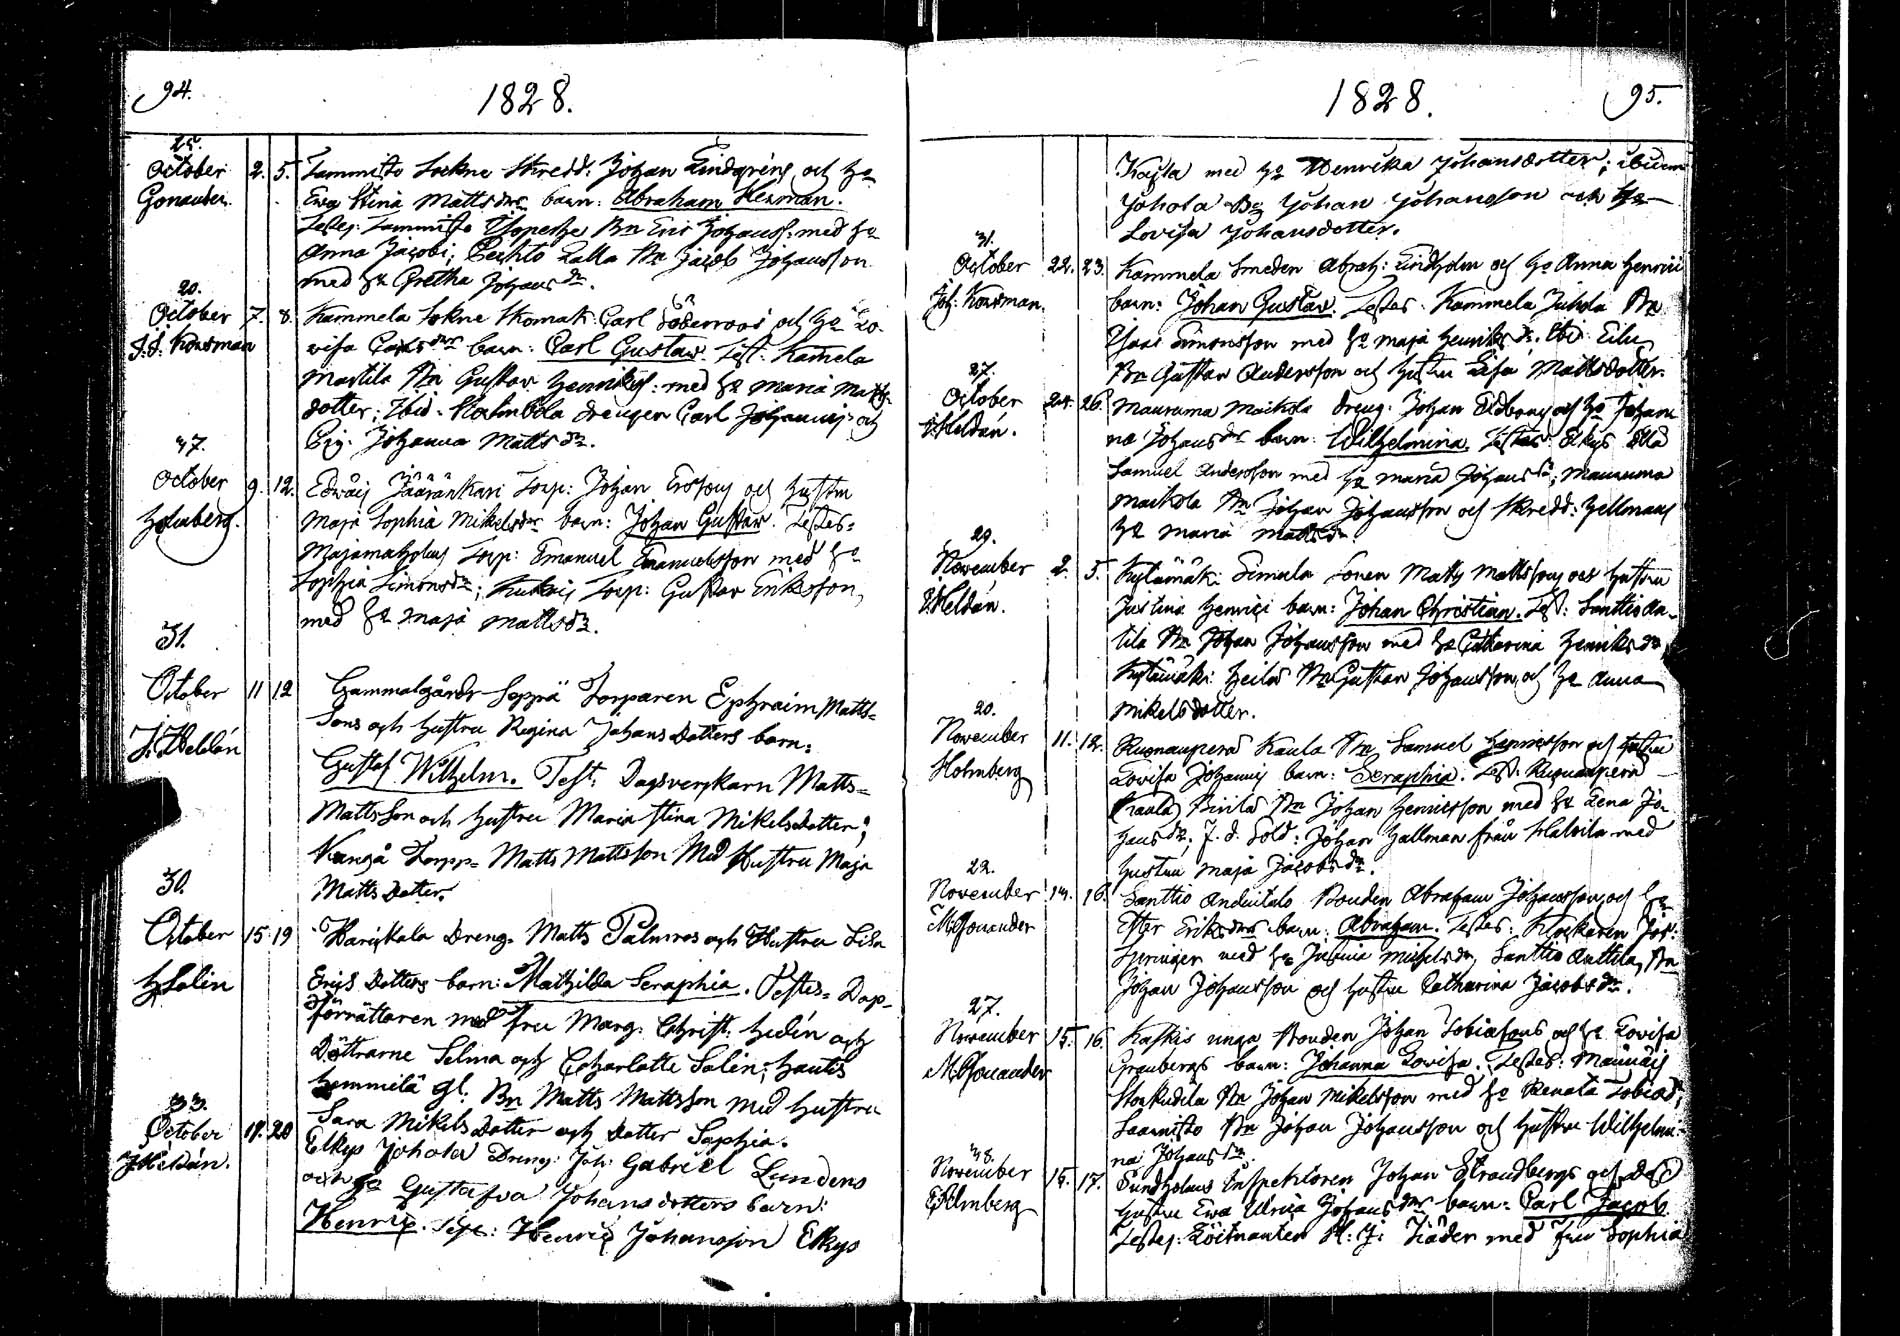 94.
1828.
25.
October 2. 5. Tammisto Sockne Skredd. Johan Lindqvéns och Ho
Gonander. Ewa Stina Mattsdrs barn: Abraham Herman.
Testes: Tammisto Bn Eric Johanss. med Ho
Anna Jacobi; Bn Jacob Johansson
med Ho Gretha Johansdr.
20.
October 7. 8. Kammela Sokne Skomak. Carl Söderroos och Ho Lo-
J. J. Konsman visa Carlsdrs barn: Carl Gustav. Test. Kamela
Martila Bn Gustav Henriks: med Ho Maria Matts-
dotter; Ibid. drengen Carl Johannis och
Pig. Johanna Mattsdr.
27.
October 9. 12. Edwais Jääränkari Torp: Johan Ersons och hustru
Holmberg. Maja Sophia Mikelsdrs barn: Johan Gustav. Testes:
Majamaholms Torp: Emanuel Emanuelsson med Ho
Sophia Simonsdr; Torp: Gustav Eriksson,
med Ho Maja Mattsdr.
31.
October 11 12 Gammalgårds Seppä Torparen Ephraim Matts-
Sons och hustru Regina Johans Dotters barn:
J. Heldán
Gustaf Wilhelm. Test: Dagsverkarn Matts-
Mattsson och hustru Maria Stina Mikelsdotter;
Kangå Torpp= Matts Mattsson Med Hustru Maja
Matts Dotter.
30.
October 15 19 Harikkala Dreng. Matts Palmros och Hustru Lisa
H Salin Erics Dotters barn: Mathilda Seraphia. Testes= Dop-
förrättaren med fru Marg: Christ. Hedén och
Döttrarne Selma och Charlotte Salin; Hautis
Hemmilä gl. Bn Matts Mattsson med hustru
Sara Mikels Dotter och Dotter Sophia.
33.
October 19. 20 Elkys Johola Dreng: Joh: Gabriel Lundens
J. Heldán. och Ho Gustafva Johansdotters barn:
Henric. Test: Henric Johansson Elkys
1828.
95.
Kasla med Ho Henrika Johansdotter; ibidem
Johola Bn Johan Johansson och Ho
Lovisa Johansdotter.
31.
October 22. 23. Kammela Smeden Abrah: Lindholm och Ho Anna Henrici
Joh. Konsman. barn: Johan Gustav. Testes. Kammela Juhola Bn
Isaac Simonsson med Ho Maja Henriksdr. Ibid. Eilu
Bn Gustav Andersson och hustru Lisa Mattsdotter.
27.
October 24. 26. Mauruma Maikola dreng. Johan Ekbons och Ho Johan-
J. Heldán. na Johansdrs barn: Wilhelmina. Testes. Elkys
Samuel Andersson med Ho Maria Johansdr; Mauruma
Maikola Bn Johan Johansson och Skredd: Hellmans
Ho Maria Mattsdr.
29.
November 2. 5. Kylämäki Simula Sonen Matts Mattssons och hustru
J. Heldán. Justina Henrici barn: Johan Christian. Test: Santtio An-
tila Bn Johan Johansson med Ho Catharina Henriksdr,
Kylämäki Heila Bn Gustav Johansson och Ho Anna
Mikelsdotter.
20.
November 11. 12. Ruonanperä Kaula Bn Samuel Henricsson och hustru
Holmberg Lovisa Johannis barn: Seraphia. Test. Ruonanperä
Kaula Bn Johan Henricsson med Ho Lena Jo-
hansdr, f. d. Sold: Johan Hallman från med
hustru Maja Jacobsdr.
22.
November 14. 16. Santtio Anduitalo Bonden Abraham Johansson och Ho
M. Gonander Ester Eriksdrs barn: Abraham. Testes: Klockaren Joh:
Springer med Ho Justina Michelsdr, Santtio Anttila Bn
Johan Johansson och hustru Catharina Jacobsdr.
27.
November 15. 16. Kaskis unga Bonden Johan Tobiasons och Ho Lovisa
M. Gonander Granbergs barn: Johanna Lovisa. Testes: Männäis
Storkudila Bn Johan Mikelsson med Ho Renata Tobiædr;
Saarnisto Bn Johan Johansson och hustru Wilhelmi-
na Johansdr.
38.
November 15. 17. Sundholms Inspektoren Johan Strandbergs och dess
Holmberg hustru Ewa Ulrica Johansdrs barn: Carl Jacob
Testes: Löitnanten med fru Sophia